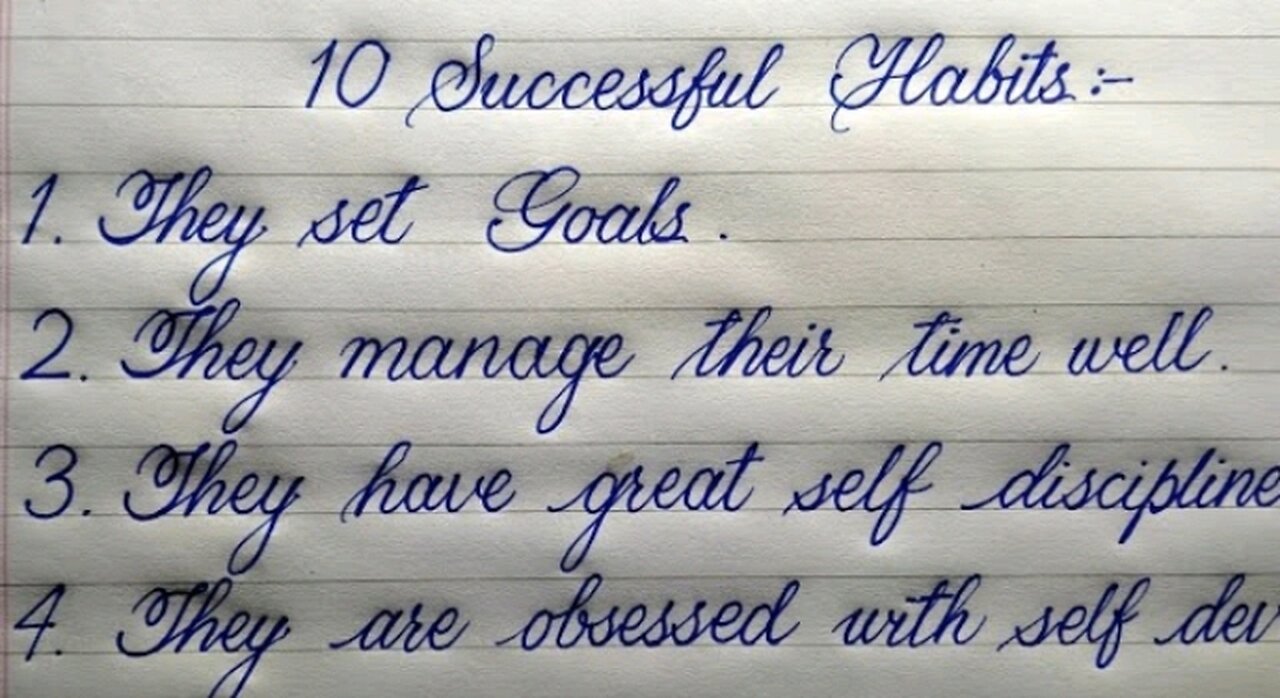 10 Successful Habits :-
1. They set Goals .
2. They manage their time well .
3. They have great self discipline
4. They are obsessed with self dev